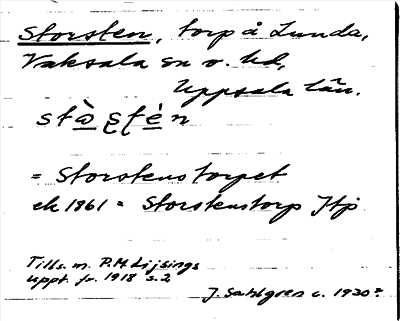 Storsten, torp å Lunda,
Vaksala sn o. hd,
Uppsala län.
stɷ̀ʂtèn
= Storstenstorpet
ek 1861 = Storstenstorp Jtp
Tills. m. P. M. Lijsings
uppt. fr. 1918 s. 2
J. Sahlgren c. 1930?